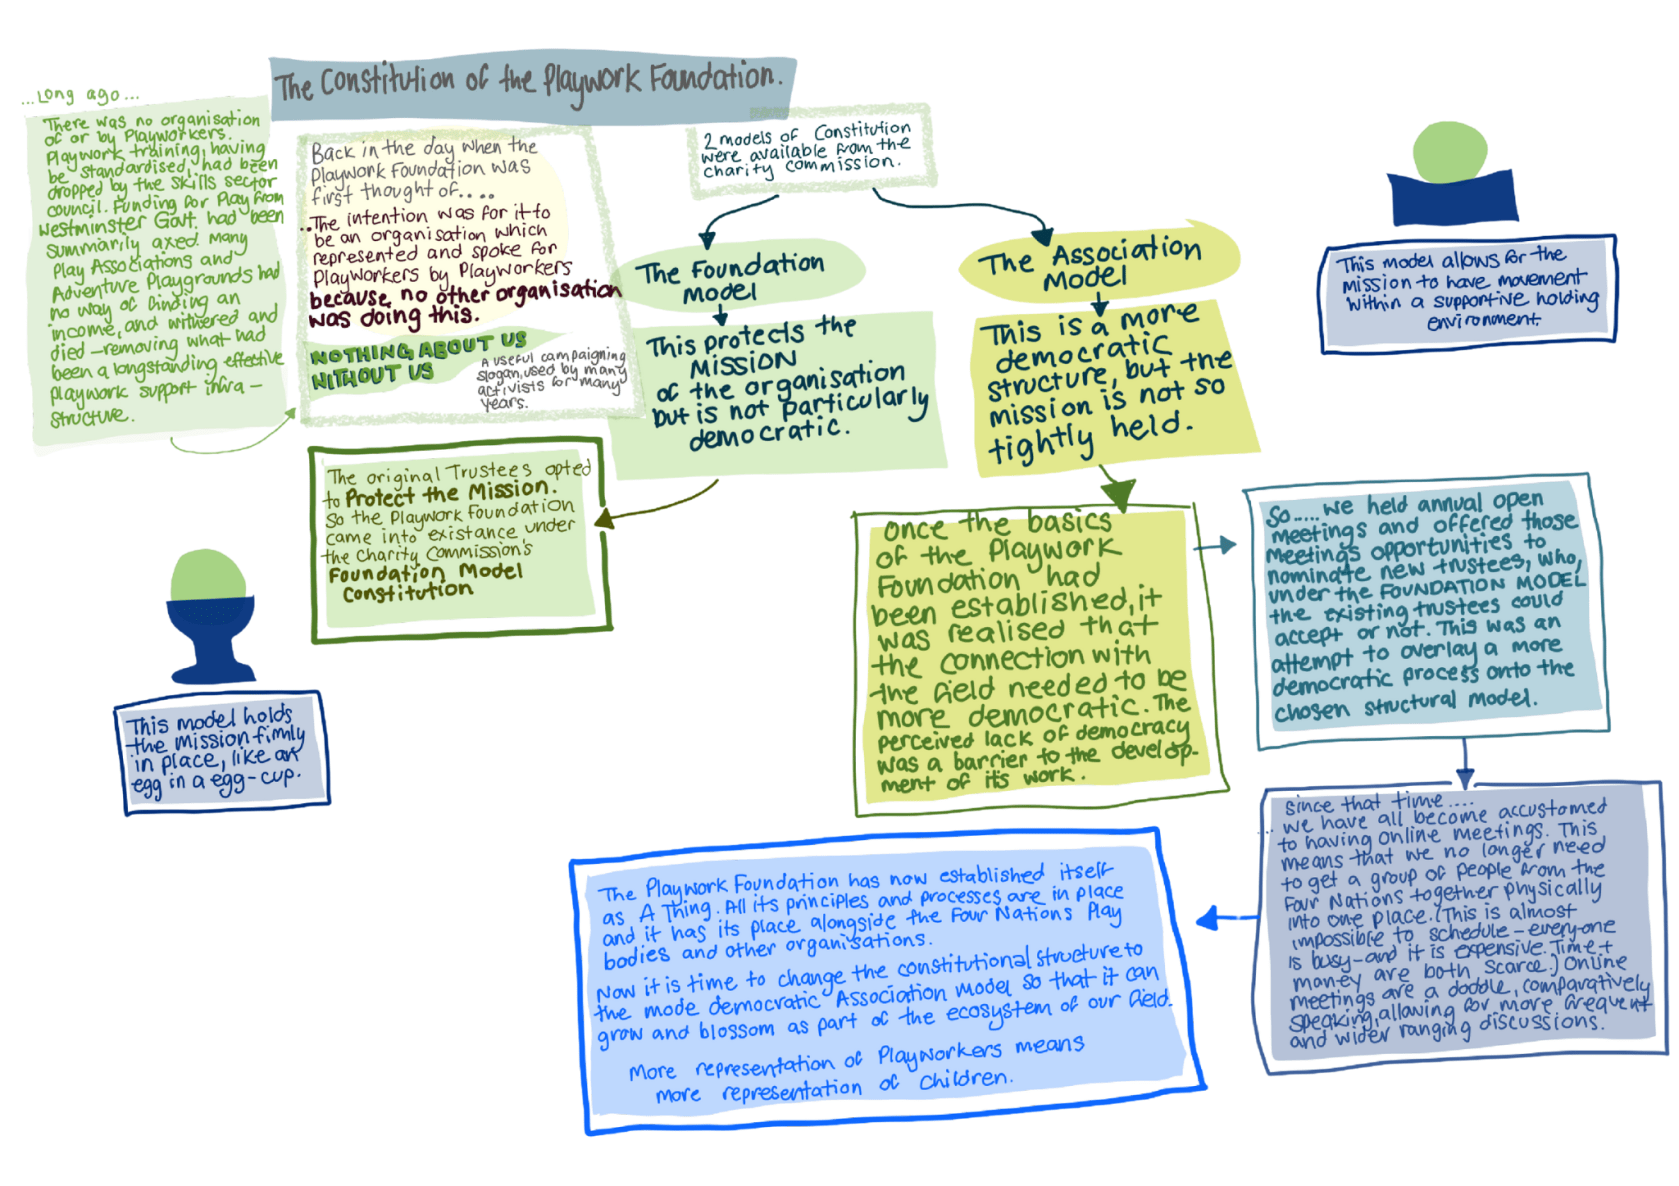 The Constitution of the Playwork Foundation.
...Long ago...
There was no organisation
of or by Playworkers.
Playwork training, having
be standardised, had been
dropped by the skills sector
council. Funding for Play from
Westminster Govt. had been
summarily axed. Many
Play Associations and
Adventure Playgrounds had
no way of finding an
income, and withered and
died – removing what had
been a longstanding effective
Playwork support infra –
structure.
Back in the day when the
Playwork Foundation was
first thought of....
..The intention was for it to
be an organisation which
represented and spoke for
Playworkers by Playworkers
because no other organisation
was doing this.
NOTHING ABOUT US
WITHOUT US
A useful campaigning
slogan, used by many
activists for many
years.
2 models of Constitution
were available from the
charity commission.
The Foundation
model
This protects the
Mission
of the organisation
but is not particularly
democratic.
The Association
Model
This is a more
democratic
structure, but the
mission is not so
tightly held.
This model allows for the
mission to have movement
within a supportive holding
environment.
The original Trustees opted
to Protect the Mission.
So the Playwork Foundation
came into existance under
the Charity Commission's
Foundation Model
Constitution
This model holds
the mission fimly
in place, like an
egg in a egg-cup.
Once the basics
of the Playwork
Foundation had
been established, it
was realised that
the connection with
the field needed to be
more democratic. The
perceived lack of democracy
was a barrier to the develop-
ment of its work.
So.....we held annual open
meetings and offered those
meetings opportunities to
nominate new trustees, who,
under the FOUNDATION MODEL
the existing trustees could
accept or not. This was an
attempt to overlay a more
democratic process onto the
chosen structural model.
since that time....
...we have all become accustomed
to having online meetings. This
means that we no longer need
to get a group of people from the
Four Nations together physically
into one place. (This is almost
impossible to schedule – everyone
is busy – and it is expensive. Time +
money are both scarce.) Online
meetings are a doddle, comparatively
speaking, allowing for more frequent
and wider ranging discussions.
The Playwork Foundation has now established itself
as A Thing. All its principles and processes are in place
and it has its place alongside the Four Nations Play
bodies and other organisations.
Now it is time to change the constitutional structure to
the mode democratic Association model so that it can
grow and blossom as part of the ecosystem of our field.
More representation of Playworkers means
more representation of Children.